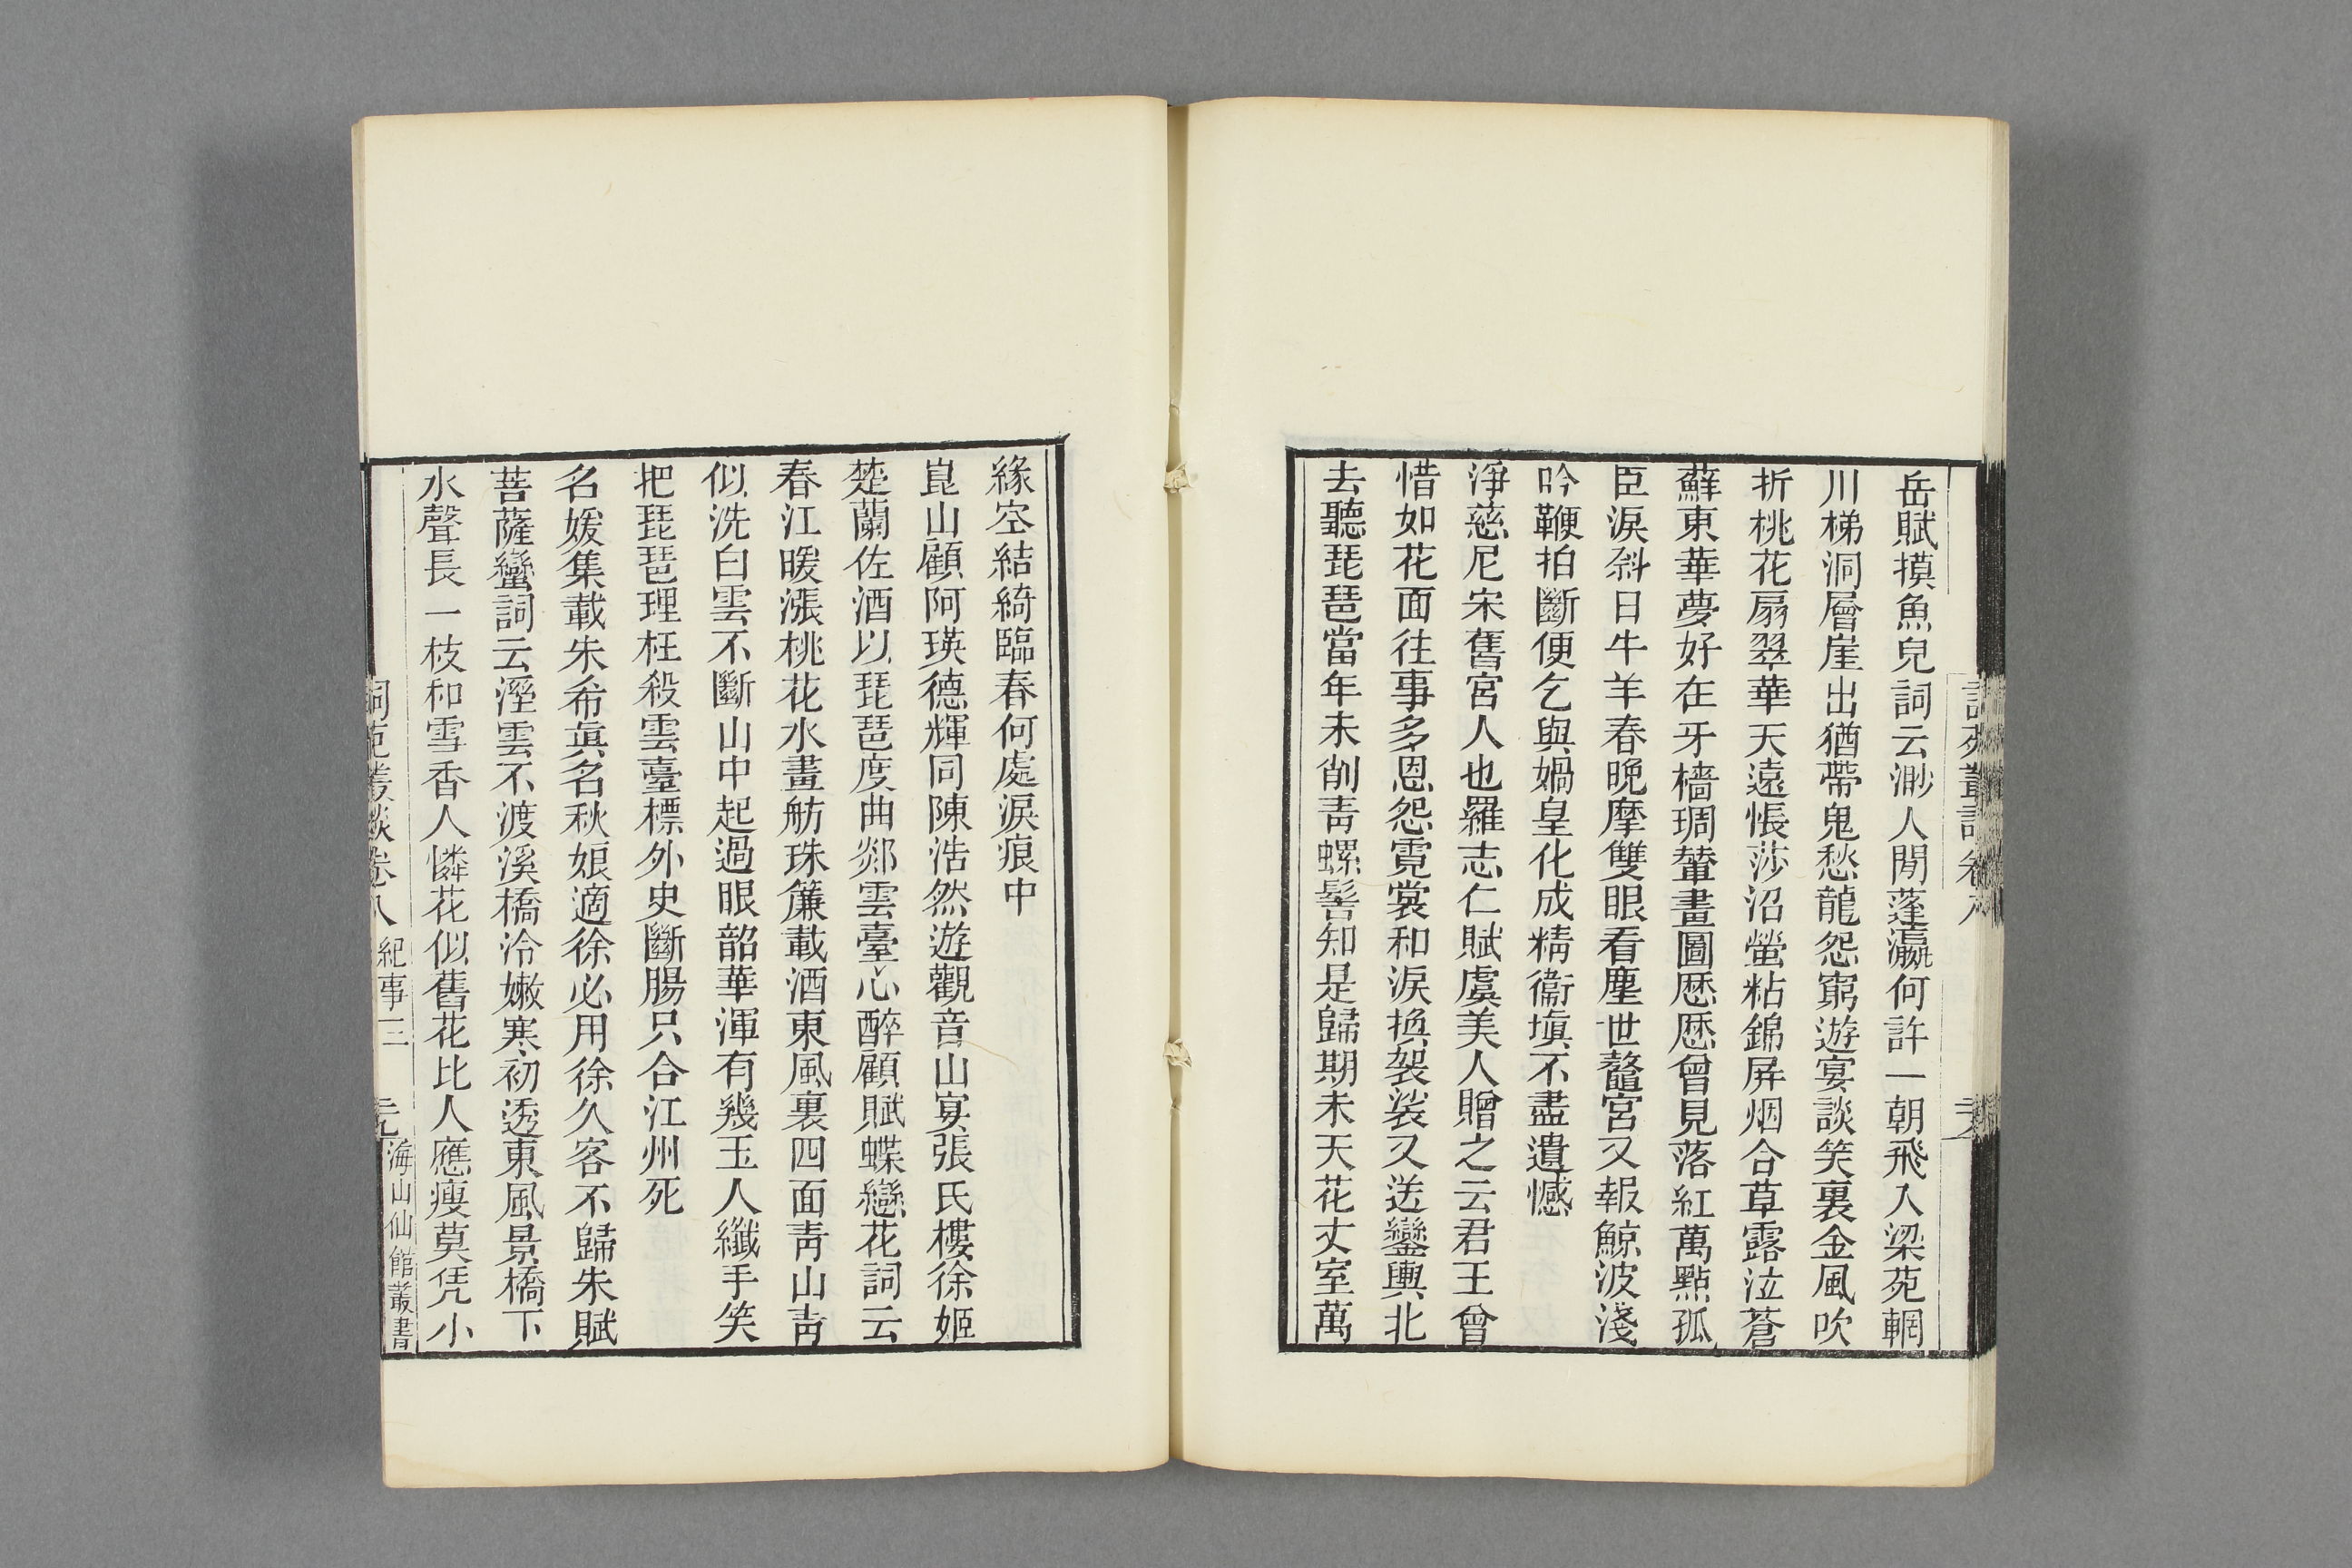 岳賦摸魚兒詞云渺人閒蓬瀛何許一朝飛入梁苑輞
川梯洞層崖出猶帶鬼愁龍怨窮遊宴談笑裏金風吹
折桃花扇翠華天遠悵莎沼螢粘錦屏烟合草露泣蒼
蘚東華夢好在牙檣琱輦畫圖歷歷曾見落紅萬點孤
臣淚斜日牛羊春晚摩雙眼看塵世鼇宮又報鯨波淺
吟鞭拍斷便乞與媧皇化成精衞塡不盡遺憾
淨慈尼宋舊宮人也羅志仁賦虞美人贈之云君王曾
惜如花面往事多恩怨霓裳和淚換袈裟又送鑾輿北
去聽琵琶當年未削靑螺髻知是歸期未天花丈室萬
緣空結綺臨春何處淚痕中
崑山顧阿瑛德輝同陳浩然遊觀音山宴張氏樓徐姬
楚蘭佐酒以琵琶度曲郯雲臺心醉顧賦蝶戀花詞云
春江暖漲桃花水畫舫珠簾載酒東風裏四面靑山靑
似洗白雲不斷山中起過眼韶華渾有幾玉人纖手笑
把琵琶理枉殺雲臺標外史斷腸只合江州死
名媛集載朱希眞名秋娘適徐必用徐久客不歸朱賦
菩薩蠻詞云溼雲不渡溪橋冷嫩寒初透東風景橋下
水聲長一枝和雪香人憐花似舊花比人應瘦莫凭小
詞苑叢談卷八 紀事三 海山仙館叢書